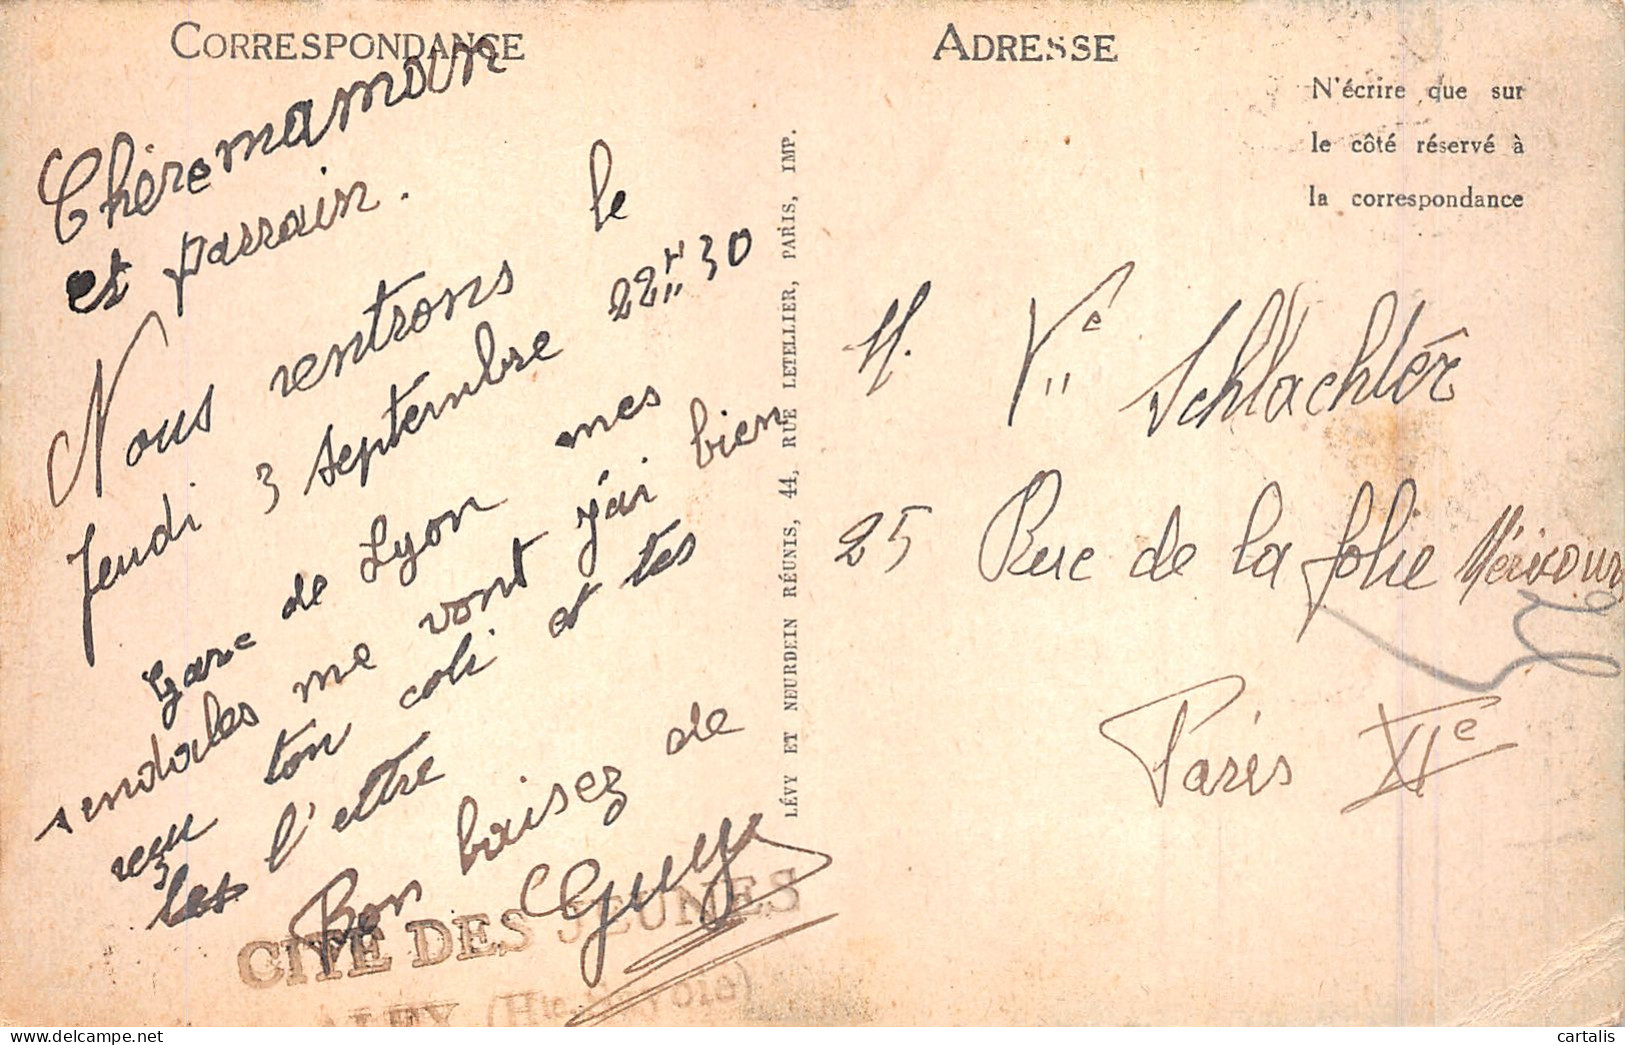 CORRESPONDANCE
Chère maman
et parrain.
Nous rentrons le
Jeudi 3 septembre 22H 30
Gare de Lyon mes
sendales me vont j'ai bien
reçu ton coli et tes
les l'ettre
Bon baisez de
Guy
CITÉ DES JEUNES
(Hte Savoie)
LÉVY ET NEURDEIN RÉUNIS, 44, RUE LETELLIER, PARIS, IMP.
ADRESSE
N'écrire que sur
le côté réservé à
la correspondance
M. Ve Schlachtér
25 Rue de la folie Méricour
Paris XIe
cartalis